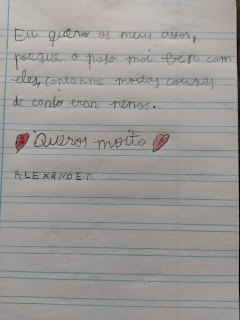 Eu quero os meus avós,
porque o paso moi ben com
eles, contanme moitas cousas
de canto eran nenos.
Quéros moito
ALEXANDER